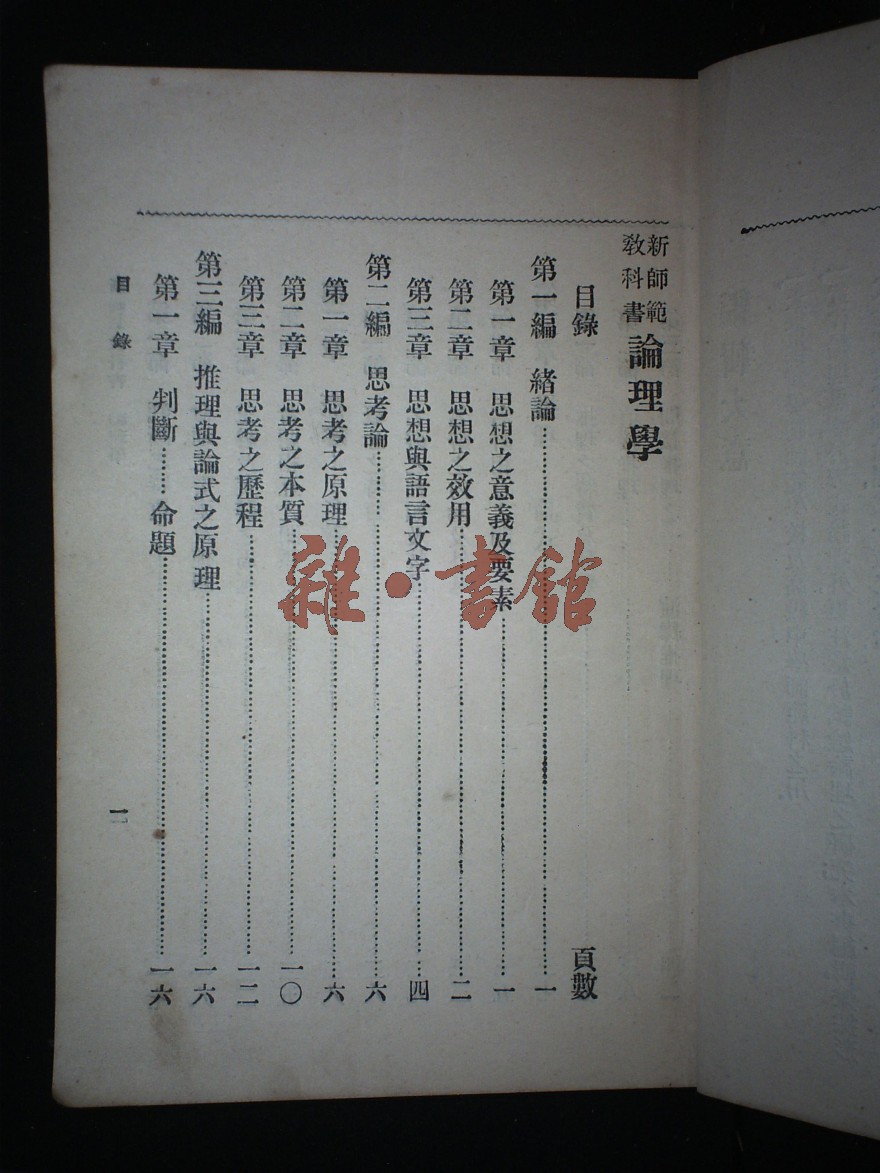 新師範教科書 論理學
目錄 頁數
第一編 緒論……一
第一章 思想之意義及要素……一
第二章 思想之效用……二
第三章 思想與語言文字……四
第二編 思考論……六
第一章 思考之原理……六
第二章 思考之本質……一〇
第三章 思考之歷程……一二
第三編 推理與論式之原理……一六
第一章 判斷……命題……一六
目錄 一
雜·書館